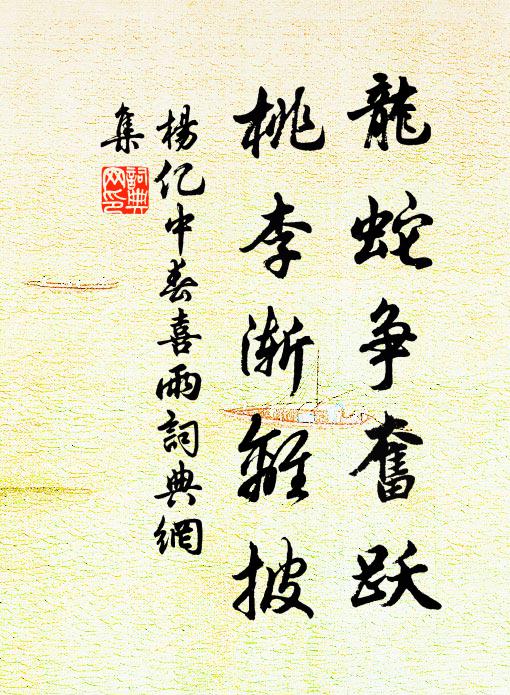 龍蛇争奮跃
桃李漸離披
楊亿中春喜雨詞典網
集
詞典
网印